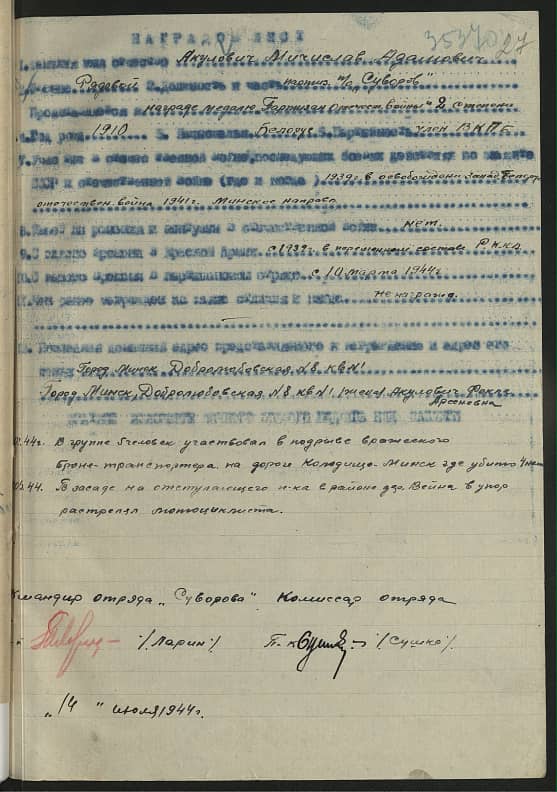 НАГРАДНОЙ ЛИСТ
35370 27
1. Фамилия имя отчество Акулович Мичислав Адамович
Рядовой 3. Должность и часть партиз. п/о "Суворов"
Представляется к награде медалю "Партизан Отечеств. войны" 2 степени
4. Год рожд. 1910 5. Национальн. Белорус 6. Партийность член ВКПб
7. Участие в отечественной войне, последующих боевых действиях по защите
СССР и отечественной войне (где и когда) 1939 г. в освобождени запад.
отечествен. война 1941 г. Минское направл.
8. Имеет ли ранения и контузии в отечественной войне нет.
9. С какого времени в Красной Армии с 1939 г. в переменном составе Р.К.К.А
10. С какого времени в партизанском отряде с 10 марта 1944 г.
11. Чем ранее награжден за какие отличия и когда не награжд.
12. Постоянный домашний адрес представляемого к награждению и адрес его
семьи Город Минск Добролюбовская №8. кв №1
Город Минск, Добролюбовская №8 кв №1. (жена) Акулович
Арсеневна
44г. В группе 5 человек участвовал в подрыве вражеского
броне-транспортера на дороги Колодищо-Минск где убито 4
44. В засаде на отступающего п-ка в районе дер. Война в упор
растрелял мотоциклиста.
Командир отряда „Суворова" Комиссар отряда
/Ларин/ П. /Сушко/
„14" июля 1944 г.